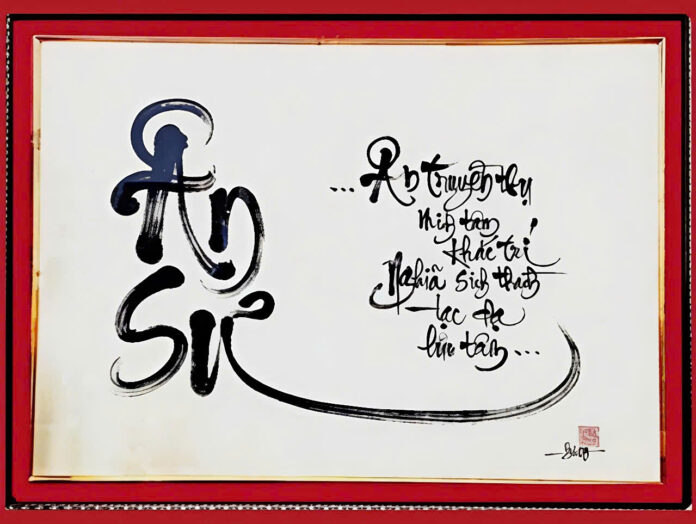 Ân
Sư
... Ân truyền thụ
minh tâm
khắc trí
Nghĩa sinh thành
tạc dạ
lưu tâm ...